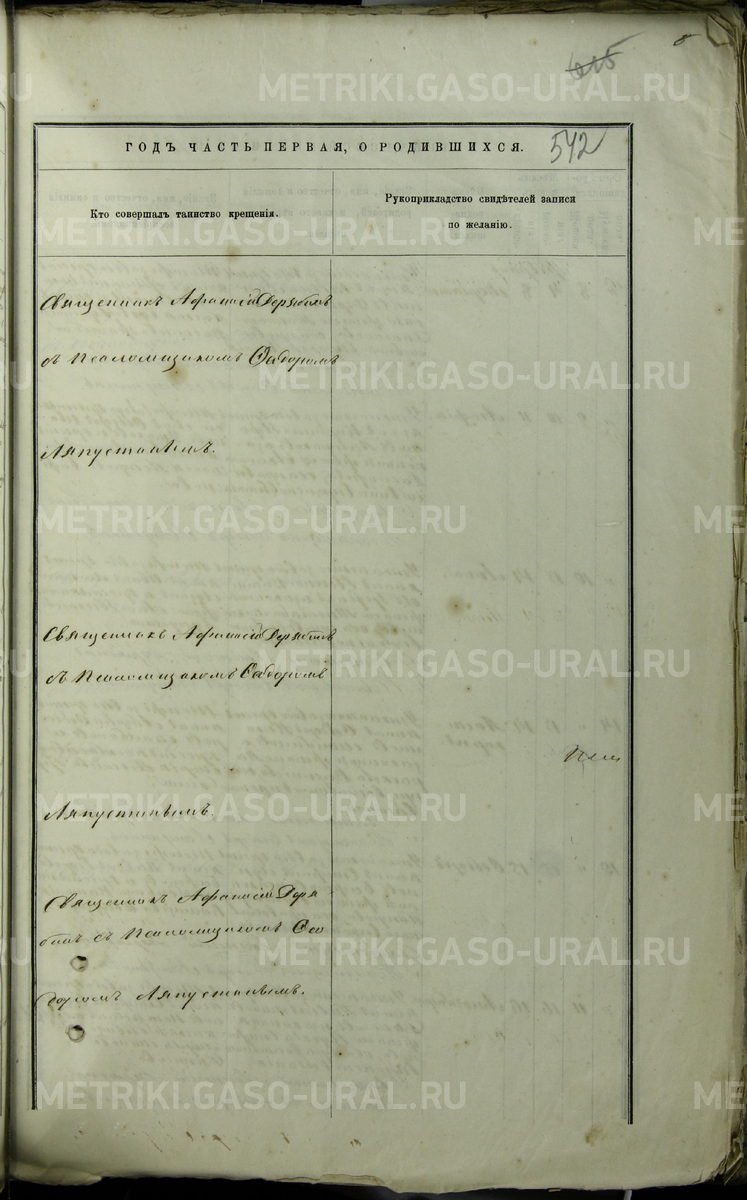 615
542
ГОДЪ ЧАСТЬ ПЕРВАЯ, О РОДИВШИХСЯ.
Кто совершалъ таинство крещенія.
Рукоприкладство свидѣтелей записи
по желанію.
Священникъ Афанасій Дерябинъ
съ Псаломщикомъ Ѳедоромъ
Ляпустинымъ.
Священникъ Афанасій Дерябинъ
съ Псаломщикомъ Ѳедоромъ
Ляпустинымъ.
Священникъ Афанасій Деря
бинъ съ Псаломщикомъ Ѳео
доромъ Ляпустинымъ.
METRIKI.GASO-URAL.RU